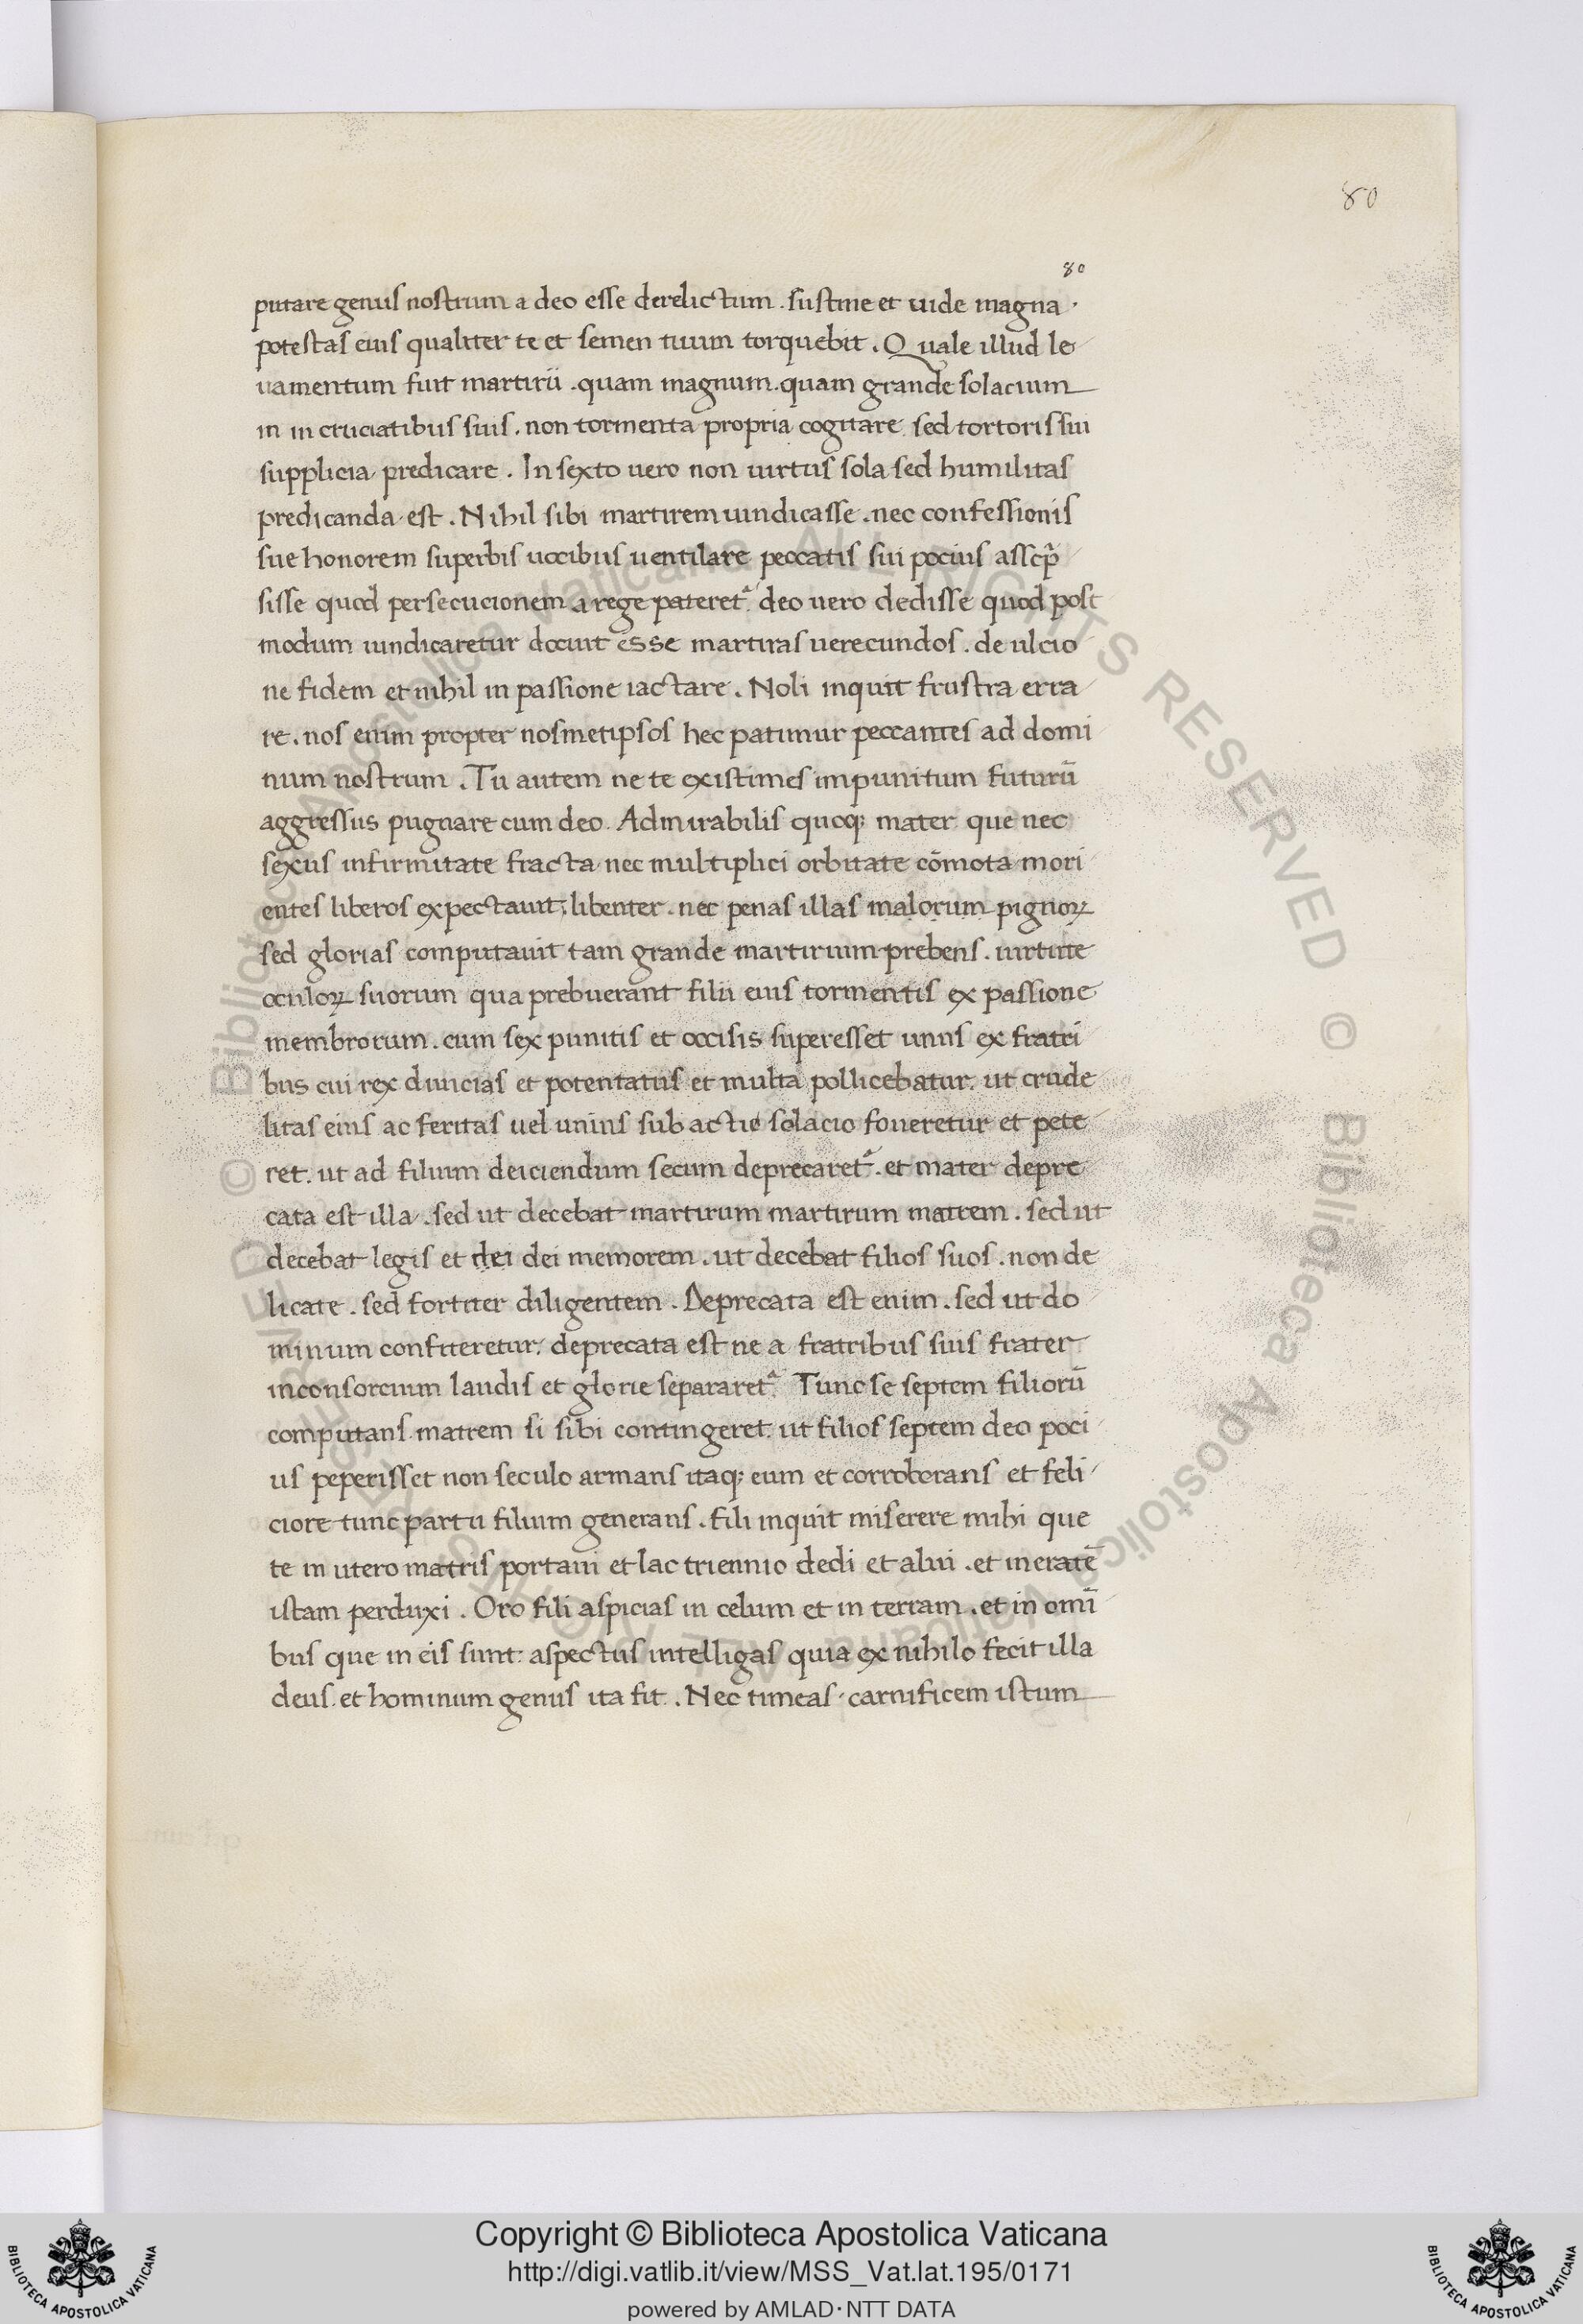 80
80
putare genus nostrum a deo esse derelictum . sustine et uide magna ·
potestas eius qualiter te et semen tuum torquebit . Quale illud le
uamentum fuit martirii . quam magnum . quam grande solacium
in in cruciatibus suis . non tormenta propria cogitare . sed tortoris sui
supplicia predicare . In sexto uero non uirtus sola sed humilitas
predicanda est . Nihil sibi martirem uindicasse . nec confessionis
sue honorem superbis uocibus uentilare peccatis sui pocius asscp̃
sisse quod persecucionem a rege pateret᷑ . deo uero dedisse quod post
modum uindicaretur docuit esse martiras uerecundos . de ulcio
ne fidem et nihil in passione iactare . Noli inquit frustra erra
re . nos enim propter nosmetipsos hec patimur peccantes ad domi
num nostrum . Tu autem ne te existimes impunitum futurū
aggressus pugnare cum deo . Admirabilis quoq; mater que nec
sexus infirmitate fracta nec multiplici orbitate cōmota mori
entes liberos expectauit . libenter . nec penas illas malorum pignoꝝ
sed glorias computauit tam grande martirium prebens . uirtute
oculoꝝ suorum qua prebuerant filii eius tormentis ex passione
membrorum . cum sex punitis et occisis superesset unus ex fratri
bus cui rex diuicias et potentatus et multa pollicebatur . ut crude
litas eius ac feritas uel unius sub actio solacio foueretur et pete
ret . ut ad filium deiciendum secum deprecaret᷑ . et mater depre
cata est illa . sed ut decebat martirum martirum matrem . sed ut
decebat legis et dei dei memorem . ut decebat filios suos . non de
licate . sed fortiter diligentem . Deprecata est enim . sed ut do
minum confiteretur . deprecata est ne a fratribus suis frater
inconsorcium laudis et glorie separaret᷑ . Tunc se septem filiorū
computans matrem si sibi contingeret . ut filios septem deo poci
us peperisset non seculo armans itaq; eum et corroborans et feli
ciore tunc partu filium generans . fili inquit miserere mihi que
te in utero matris portaui et lac triennio dedi et alui . et in etatē
istam perduxi . Oro fili aspicias in celum et in terram . et in omī
bus que in eis sunt . aspectus intelligas quia ex nihilo fecit illa
deus . et hominum genus ita fit . Nec timeas carnificem istum
© Biblioteca Apostolica Vaticana ALL RIGHTS RESERVED © Biblioteca Apostolica Vaticana ALL RIGHTS RESERVED
Copyright © Biblioteca Apostolica Vaticana
http://digi.vatlib.it/view/MSS_Vat.lat.195/0171
powered by AMLAD·NTT DATA
BIBLIOTECA APOSTOLICA VATICANA
BIBLIOTECA APOSTOLICA VATICANA